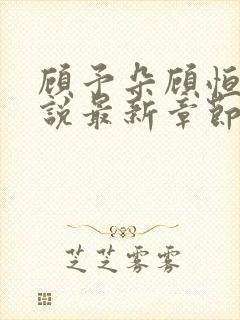 顾予朵顾恒
說最新章節
芝芝雾雾